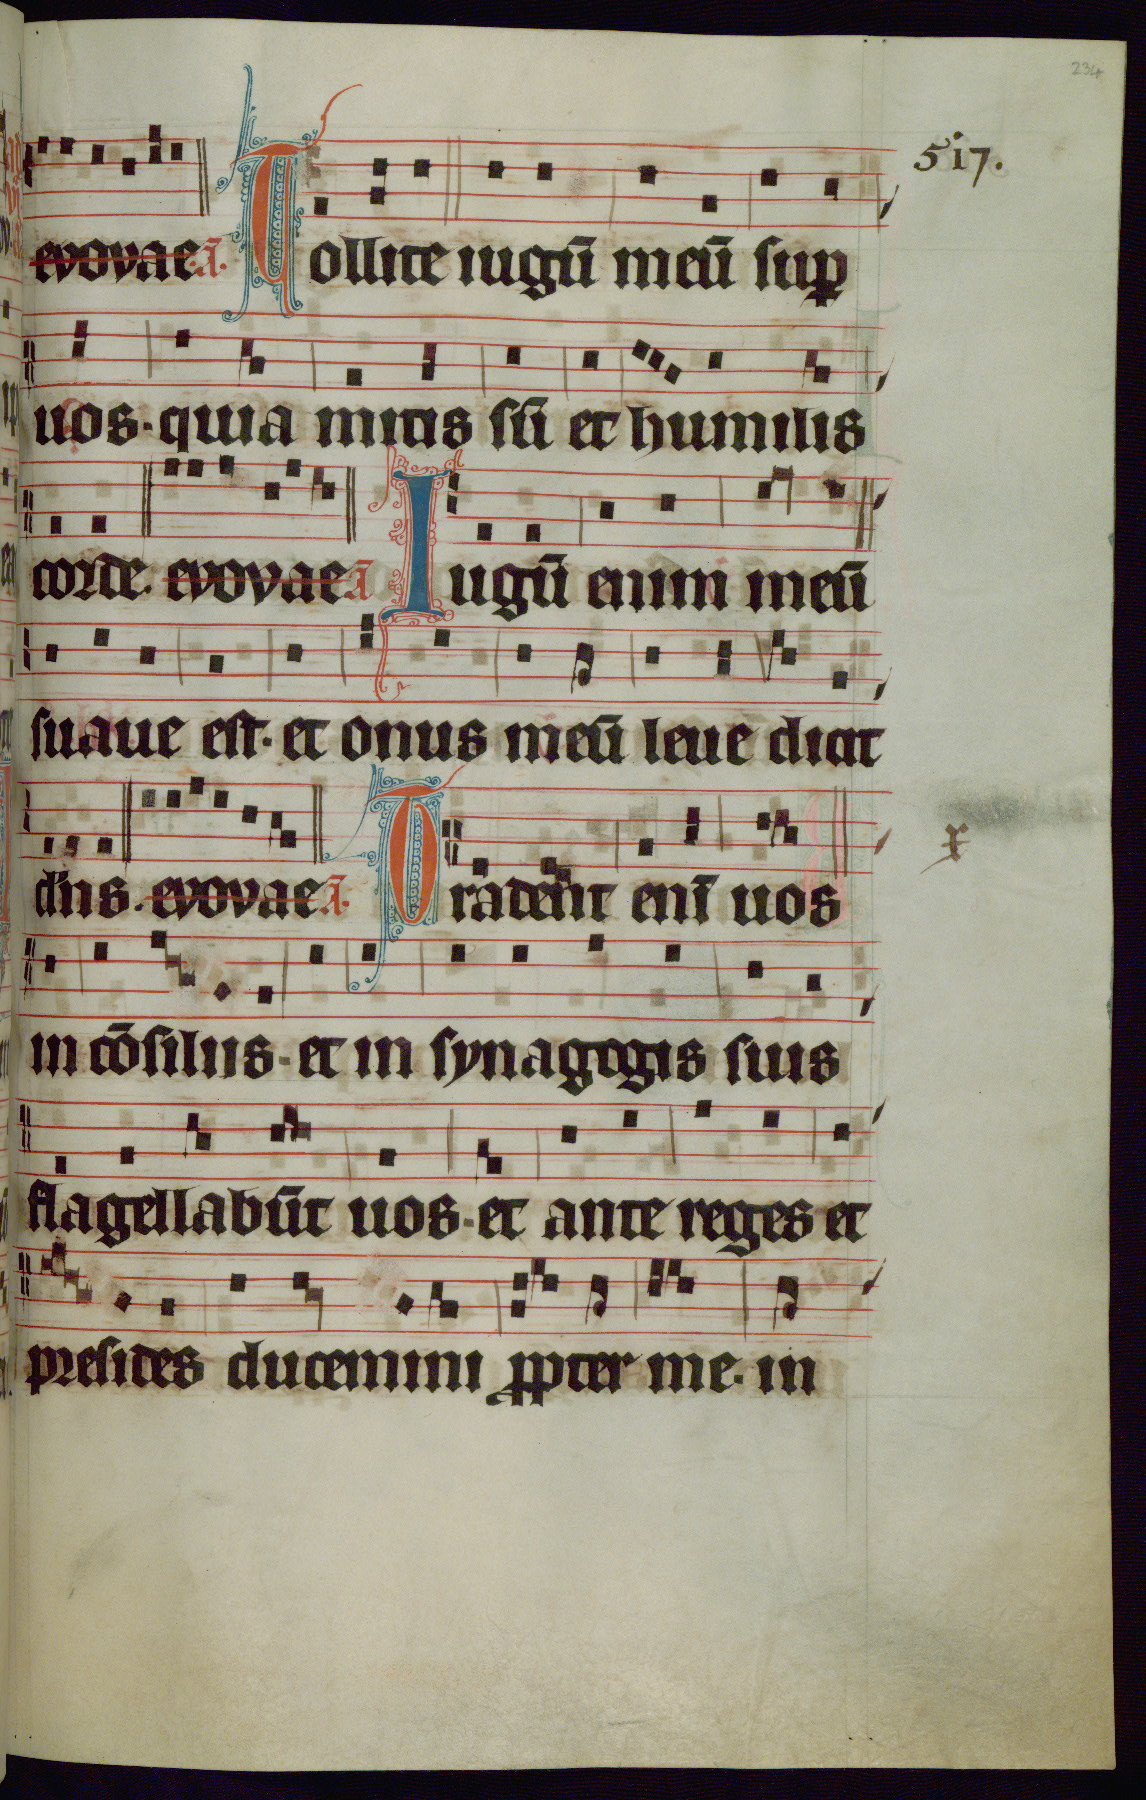 234
517.
evovae. A. Tollite iugū meū sup
uos· quia mitis sū et humilis
corde. evovae A Iugū enim meū
suaue est· et onus meū leue dicit
dn̄s. evovae A. Tradent enī uos
in cōsiliis· et in synagogis suis
flagellabūt uos· et ante reges et
presides ducemini ꝓpter me· in
x